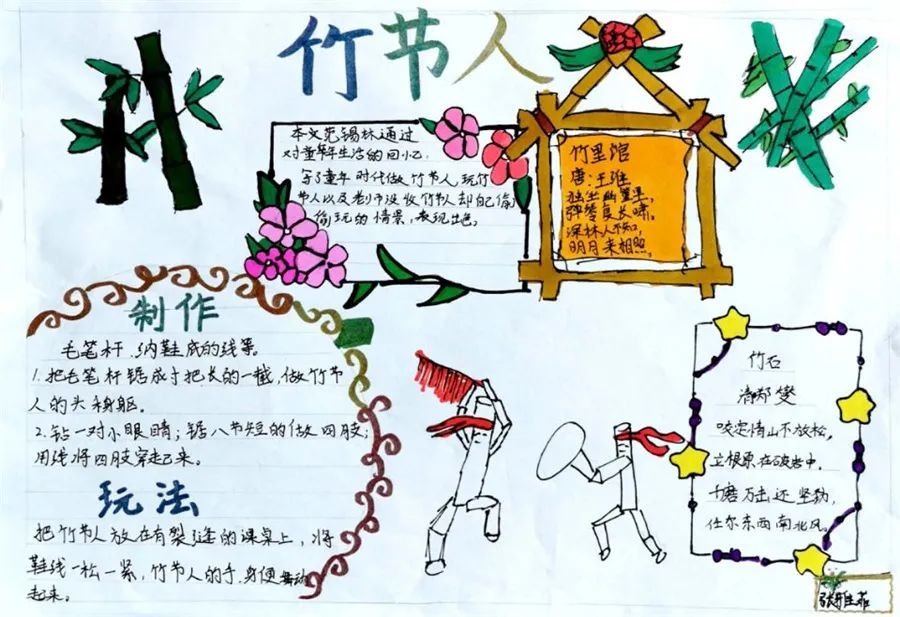 竹节人
本文范锡林通过
对童年生活的回忆,
写了童年时代做竹节人,玩竹
节人以及老师没收竹节人却自己偷
偷玩的情景,表现出色。
竹里馆
唐:王维
独坐幽篁里,
弹琴复长啸。
深林人不知,
明月来相照。
制作
毛笔杆、纳鞋底的线等。
1.把毛笔杆锯成寸把长的一截,做竹节
人的头和身躯。
2.钻一对小眼睛;锯八节短的做四肢;
用线将四肢穿起来。
玩法
把竹节人放在有裂缝的课桌上,将
鞋线一松一紧,竹节人的手、身便舞动
起来。
竹石
清郑燮
咬定情山不放松,
立根原在破岩中。
千磨万击还坚劲,
任尔东西南北风。
张雅菲